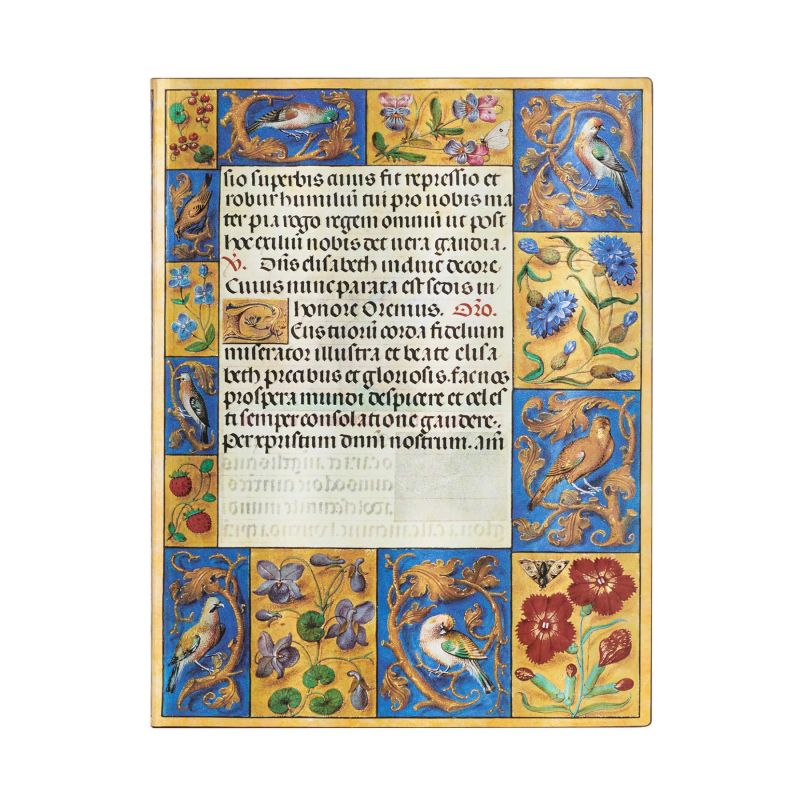 sio superbis cuius fit repressio et
robur humiliū tui pro nobis ma
ter pia rogo regem omniū ut post
hoc exiliū nobis det uera gaudia.
℣. Dn̄s elisabeth induit decore.
Cuius nunc parata est sedis in
honore Oremus. Or̄o.
Eus tuorū corda fidelium
miserator illustra et beate elisa
beth precibus et gloriosis. fac nos
prospera mundi despicere et celes
ti semper consolatione gaudere.
Per xpristum dnm̄ nostrum. am̄